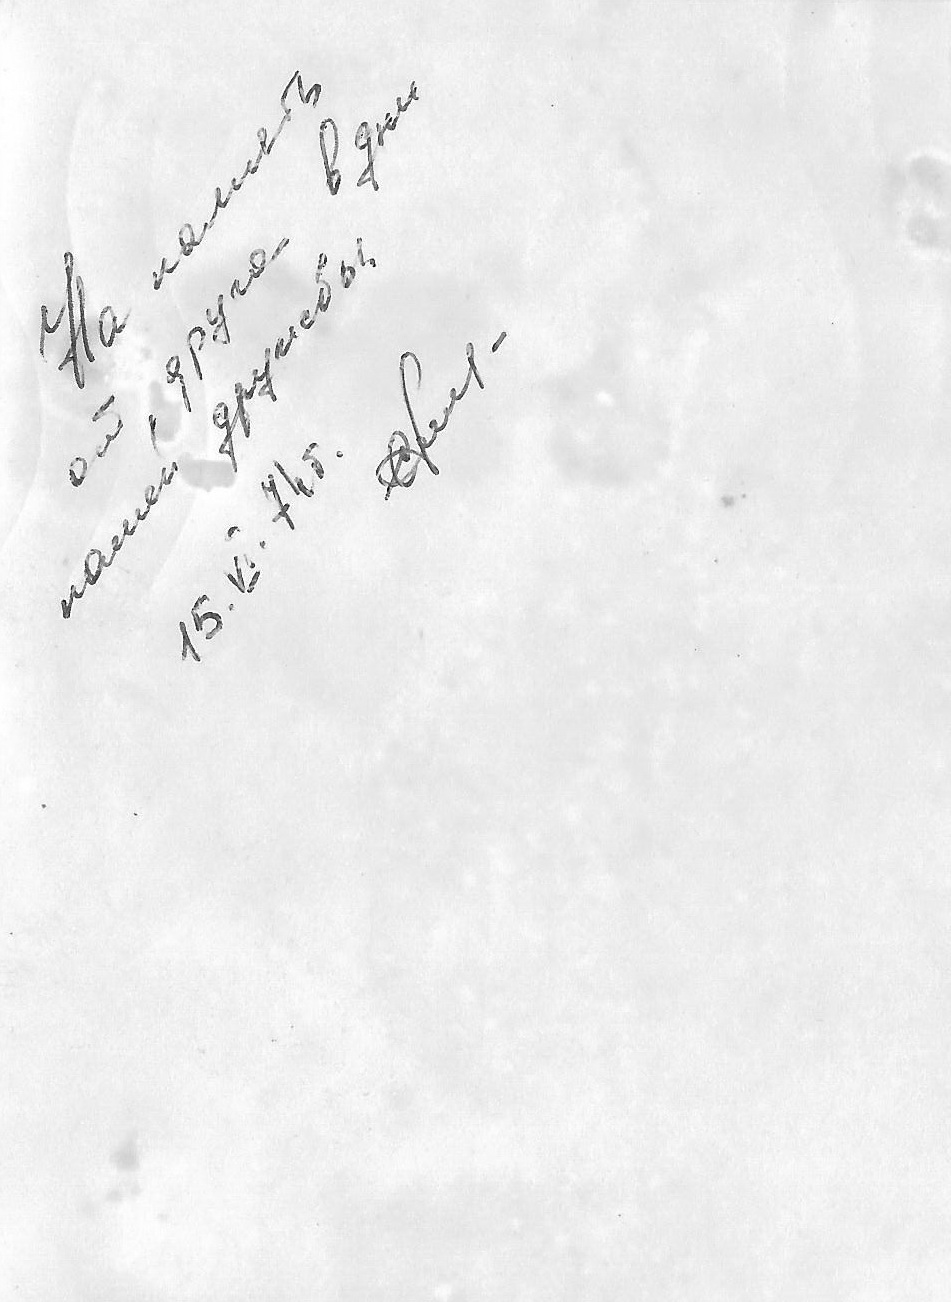 На память
от друга в дни
нашей дружбы
15.VI.74г.